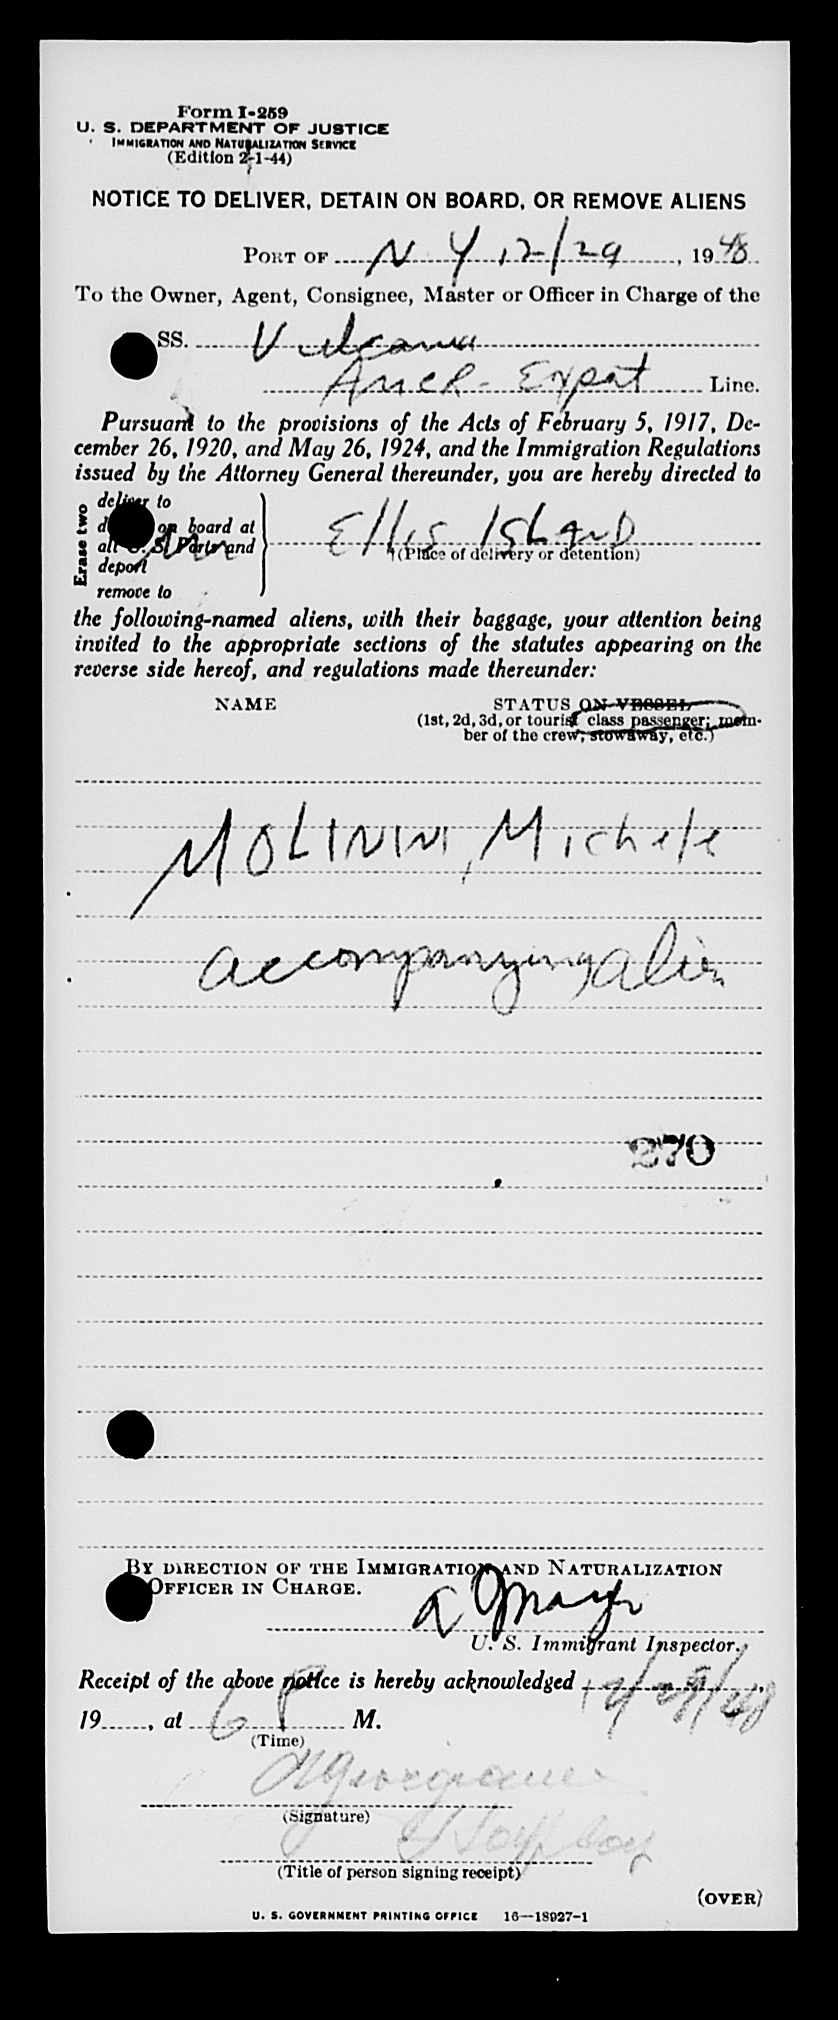 Form I-259
U. S. DEPARTMENT OF JUSTICE
IMMIGRATION AND NATURALIZATION SERVICE
(Edition 2-1-44)
NOTICE TO DELIVER, DETAIN ON BOARD, OR REMOVE ALIENS
PORT OF N Y 12/29, 1948
To the Owner, Agent, Consignee, Master or Officer in Charge of the
SS. Vulcania
Amer-Export Line.
Pursuant to the provisions of the Acts of February 5, 1917, De-
cember 26, 1920, and May 26, 1924, and the Immigration Regulations
issued by the Attorney General thereunder, you are hereby directed to
Erase two
deliver to
on board at
all U. S. Ports and
deport
remove to
Ellis Island
(Place of delivery or detention)
the following-named aliens, with their baggage, your attention being
invited to the appropriate sections of the statutes appearing on the
reverse side hereof, and regulations made thereunder:
NAME STATUS ON VESSEL
(1st, 2d, 3d, or tourist class passenger; mem-
ber of the crew; stowaway, etc.)
MOLININI, Michele
accompanying alien
270
BY DIRECTION OF THE IMMIGRATION AND NATURALIZATION
OFFICER IN CHARGE.
U. S. Immigrant Inspector.
Receipt of the above notice is hereby acknowledged 12/29/48,
19......, at 6 P M.
(Time)
(Signature)
(Title of person signing receipt)
(OVER)
U. S. GOVERNMENT PRINTING OFFICE 16—18927-1